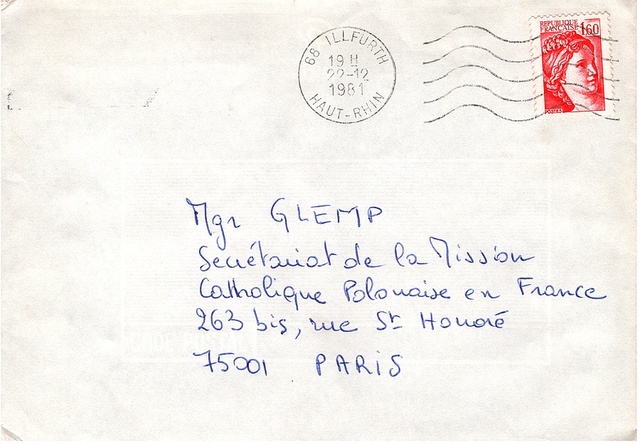 68 ILLFURTH
19 H
22-12
1981
HAUT-RHIN
REPUBLIQUE
FRANÇAISE
1,60
POSTES
Mgr GLEMP
Secrétariat de la Mission
Catholique Polonaise en France
263 bis, rue St Honoré
75001 PARIS